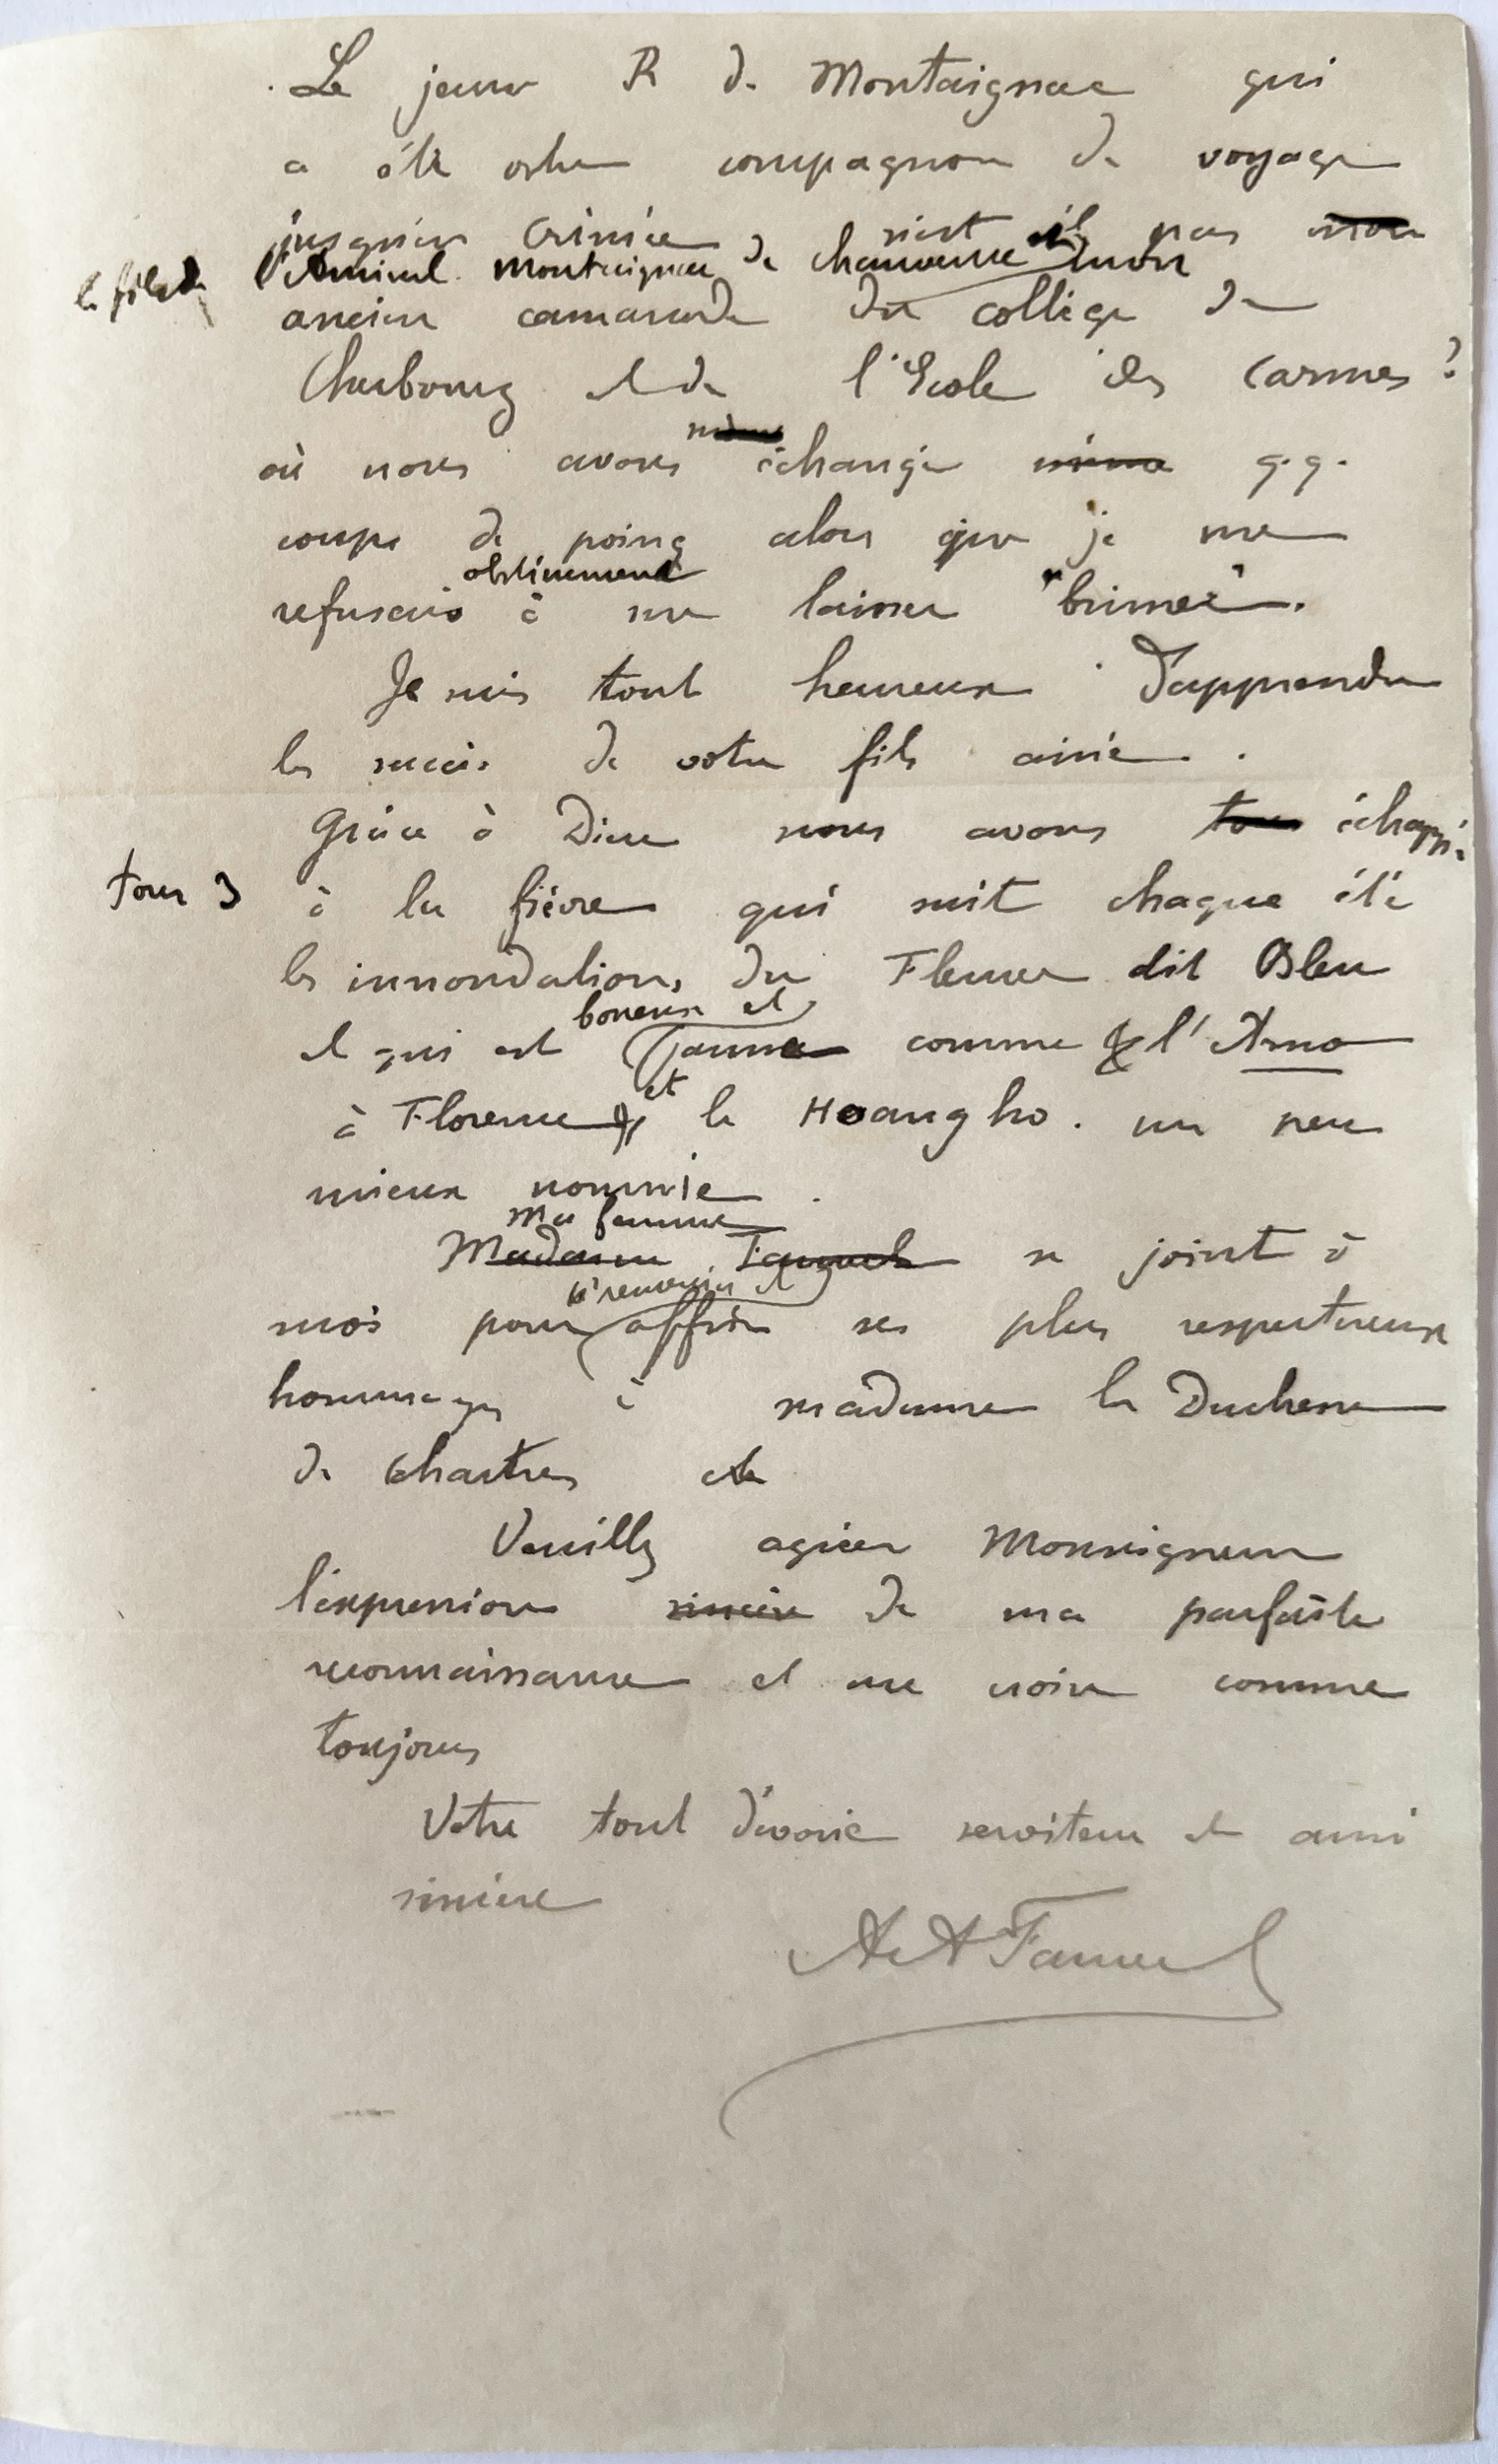 Le jeune R de Montaignac qui
a été votre compagnon de voyage
jusqu'en Crimée n'est il pas mon
le fils de l'Amiral Montaignac de Chauvance mon
ancien camarade du collège de
Cherbourg et de l'Ecole des Carmes ?
même
où nous avons échangé même q.q.
coups de poing alors que je me
obstinement
refusais à me laisser "brimer".
Je suis tout heureux d'apprendre
les succès de votre fils ainé.
Grâce à Dieu nous avons tous échappé
tous 3 à la fièvre qui suit chaque été
les innondations du Fleuve dit Bleu
boueux et
et qui est jaune comme l'Arno
et
à Florence le Hoangho. un peu
mieux nommé.
Ma femme
Madame Fauvel se joint à
et
moi pour offrir ses plus respectueux
hommages à madame la Duchesse
de Chartres et
Veuillez agréer Monseigneur
l'expression sincère de ma parfaite
reconnaissance et me croire comme
toujours
Votre tout dévoué serviteur et ami
sincère
A A Fauvel